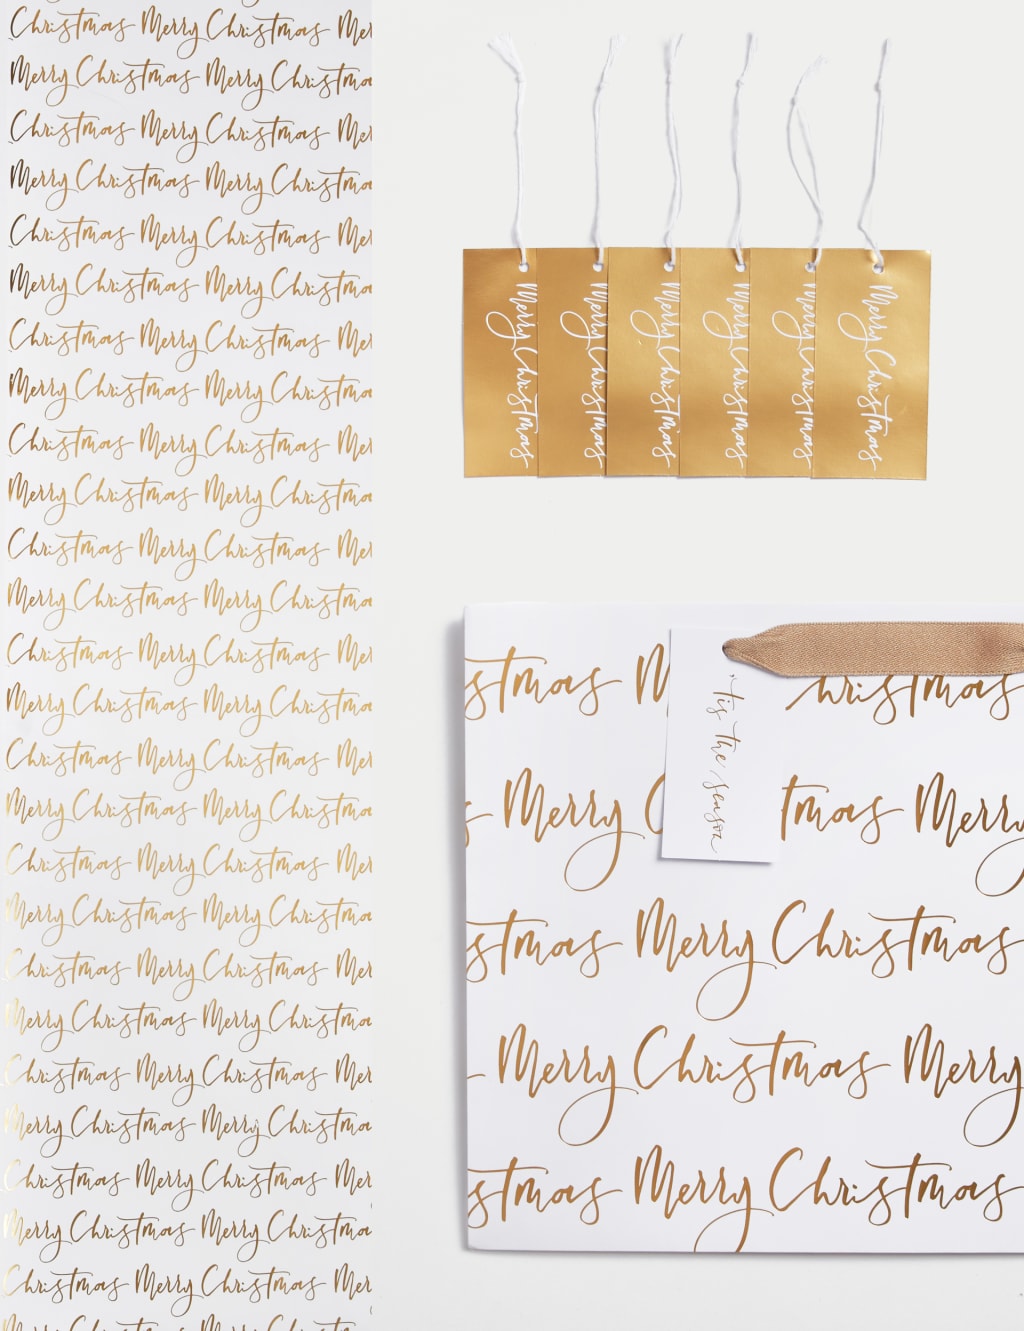 Christmas Merry Christmas Mer
Merry Christmas Merry Christma
Christmas Merry Christmas Mer
Merry Christmas Merry Christma
Christmas Merry Christmas Mer
Merry Christmas Merry Christma
Christmas Merry Christmas Mer
Merry Christmas Merry Christma
Christmas Merry Christmas Mer
Merry Christmas Merry Christma
Christmas Merry Christmas Mer
Merry Christmas Merry Christma
Christmas Merry Christmas Mer
Merry Christmas Merry Christma
Christmas Merry Christmas Mer
Merry Christmas Merry Christma
Christmas Merry Christmas Mer
Merry Christmas Merry Christma
Christmas Merry Christmas Mer
Merry Christmas Merry Christma
Christmas Merry Christmas Mer
Merry Christmas Merry Christma
Christmas Merry Christmas Mer
Merry Christmas Merry Christma
Christmas Merry Christmas Mer
Merry Christmas
Merry Christmas
Merry Christmas
Merry Christmas
Merry Christmas
Merry Christmas
stmas M hristmas
'tis the season
Merry C tmas Merry
stmas Merry Christmas
Merry Christmas Merry
stmas Merry Christmas